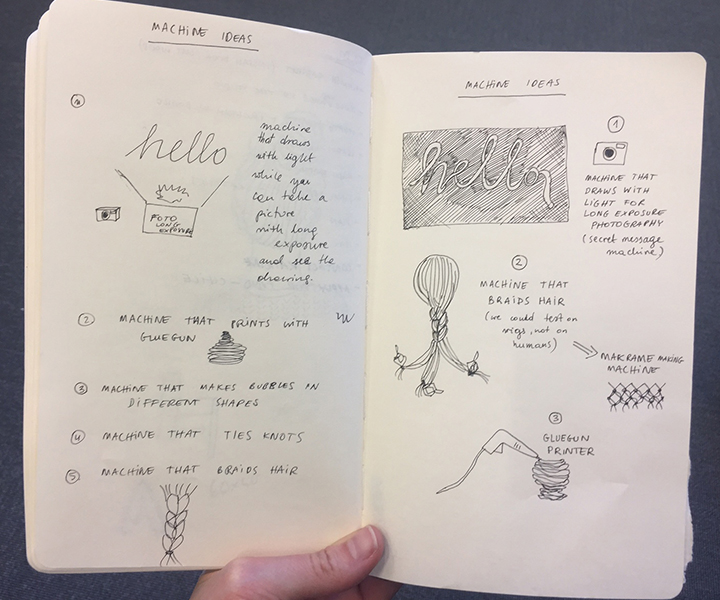 MACHINE IDEAS
1
hello
machine
that draws
with light
while you
can take a
picture
with long
exposure
and see the
drawing.
FOTO
LONG
EXPOSURE
2 MACHINE THAT PRINTS WITH
GLUEGUN
3 MACHINE THAT MAKES BUBBLES IN
DIFFERENT SHAPES
4 MACHINE THAT TIES KNOTS
5 MACHINE THAT BRAIDS HAIR
MACHINE IDEAS
hello,
1
MACHINE THAT
DRAWS WITH
LIGHT FOR
LONG EXPOSURE
PHOTOGRAPHY
(secret message
machine)
2
MACHINE THAT
BRAIDS HAIR
(we could test on
wigs, not on
humans)
MAKRAME MAKING
MACHINE
3
GLUEGUN
PRINTER